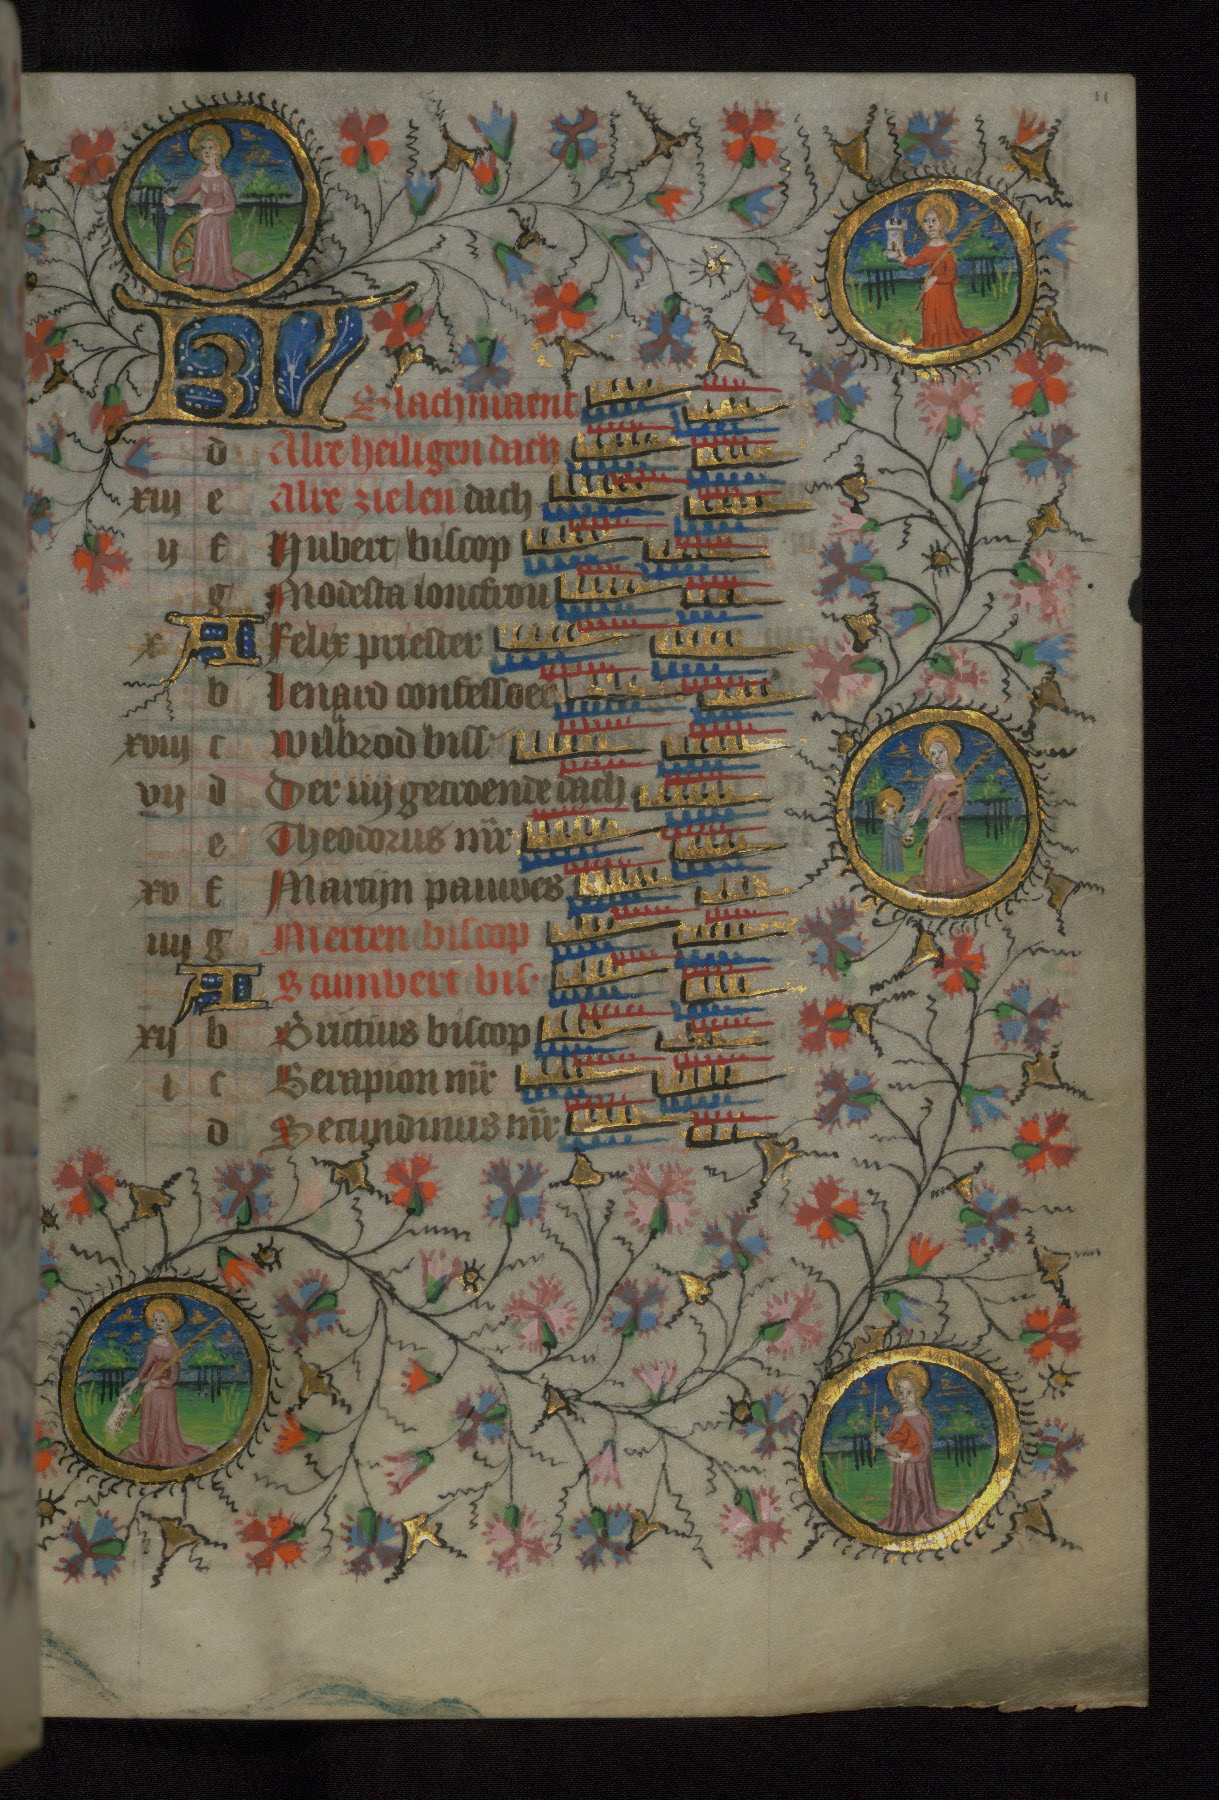 KL Slachmaent
d Alre heiligen dach
xiij e Alre zielen dach
ij f Hubert biscop
g Modesta ioncfrou
x A Felix priester
b Lenard confessoer
xviij c Wilbrod bisſ
vij d Der iiij getroende dach
e Theodorus mr̄
xv f Martijn pauwes
iiij g Merten biscop
A Cunibert bis
xij b Brictius biscop
i c Serapion mr̄
d Secundinus mr̄